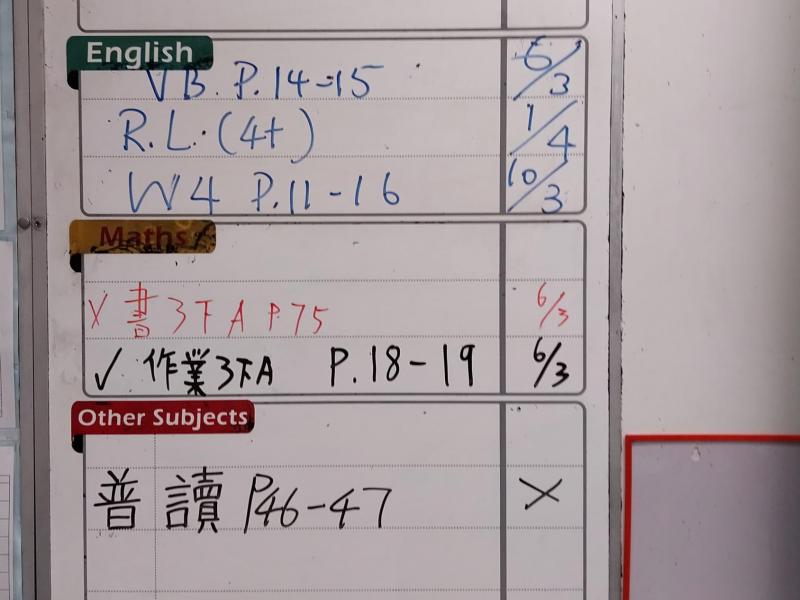 English
VB. P.14-15 6/3
R.L. (4+) 1/4
W4 P.11-16 10/3
Maths
X 書3下A P.75 6/3
✓ 作業3下A P.18-19 6/3
Other Subjects
普讀 P46-47 X